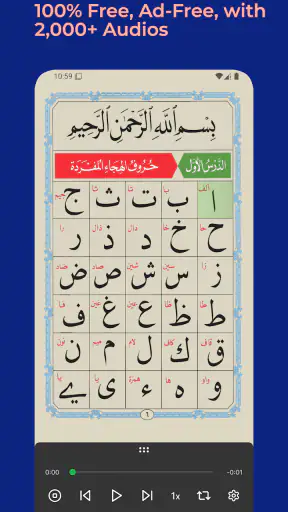 100% Free, Ad-Free, with
2,000+ Audios
10:59
بِسْمِ اللّٰهِ الرَّحْمٰنِ الرَّحِيْمِ
الدَّرْسُ الْأَوَّلُ حُرُوفُ الْهِجَاءِ الْمُفْرَدَةِ
ا ب ت ث ج
ح خ د ذ ر
ز س ش ص ض
ط ظ ع غ ف
ق ك ل م ن
و ه ء ى ے
٦
0:00 -0:01
1x